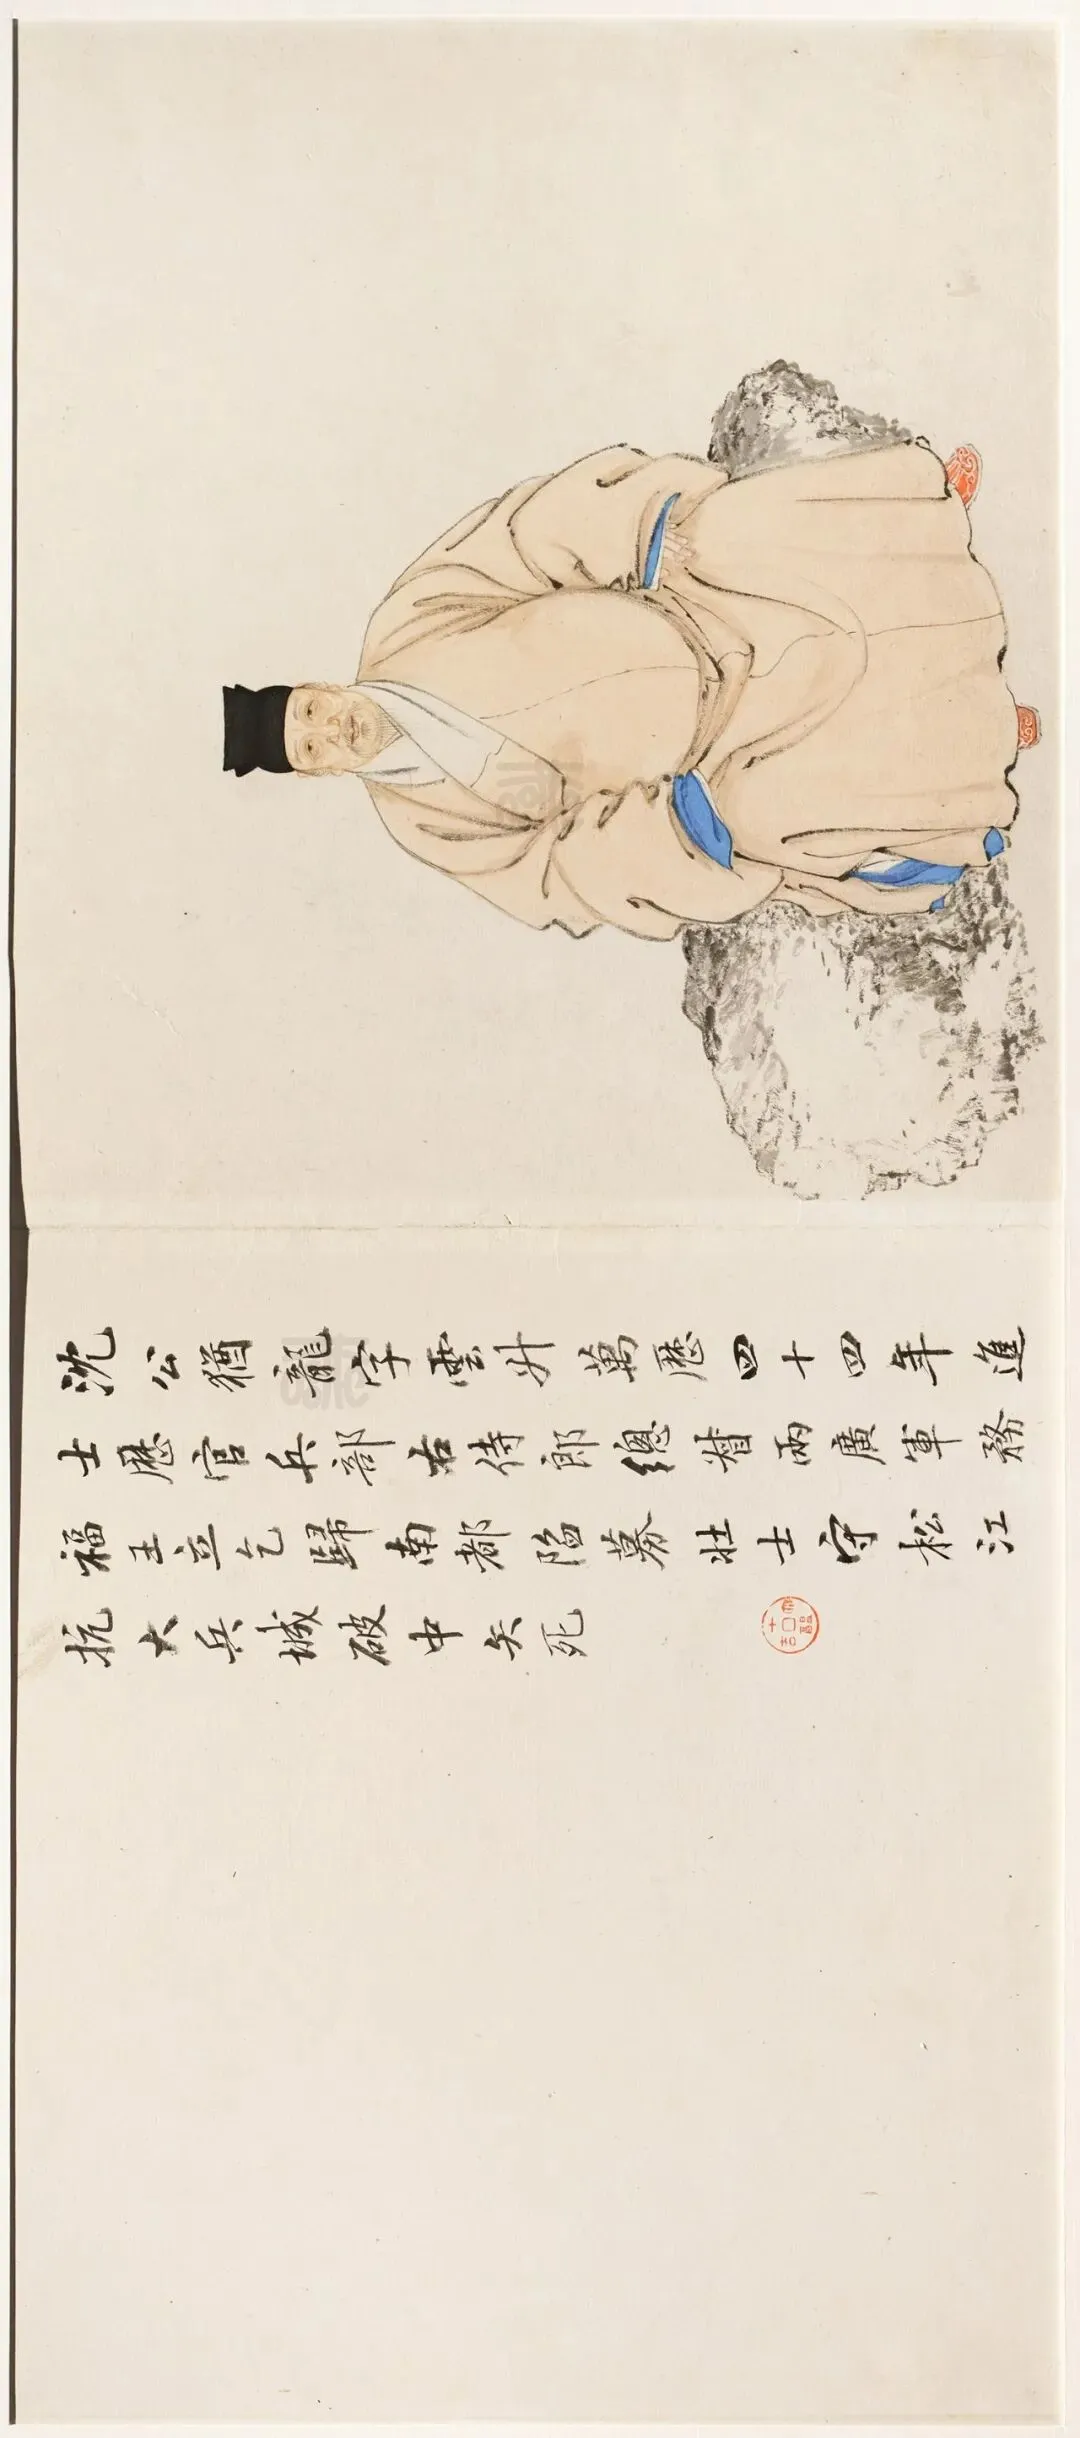 沈公猶龍字雲升萬歷四十四年進
士歷官兵部右侍郎總督兩廣軍務
福王立乞歸南都陷募壯士守松江
抗大兵城破中矢死